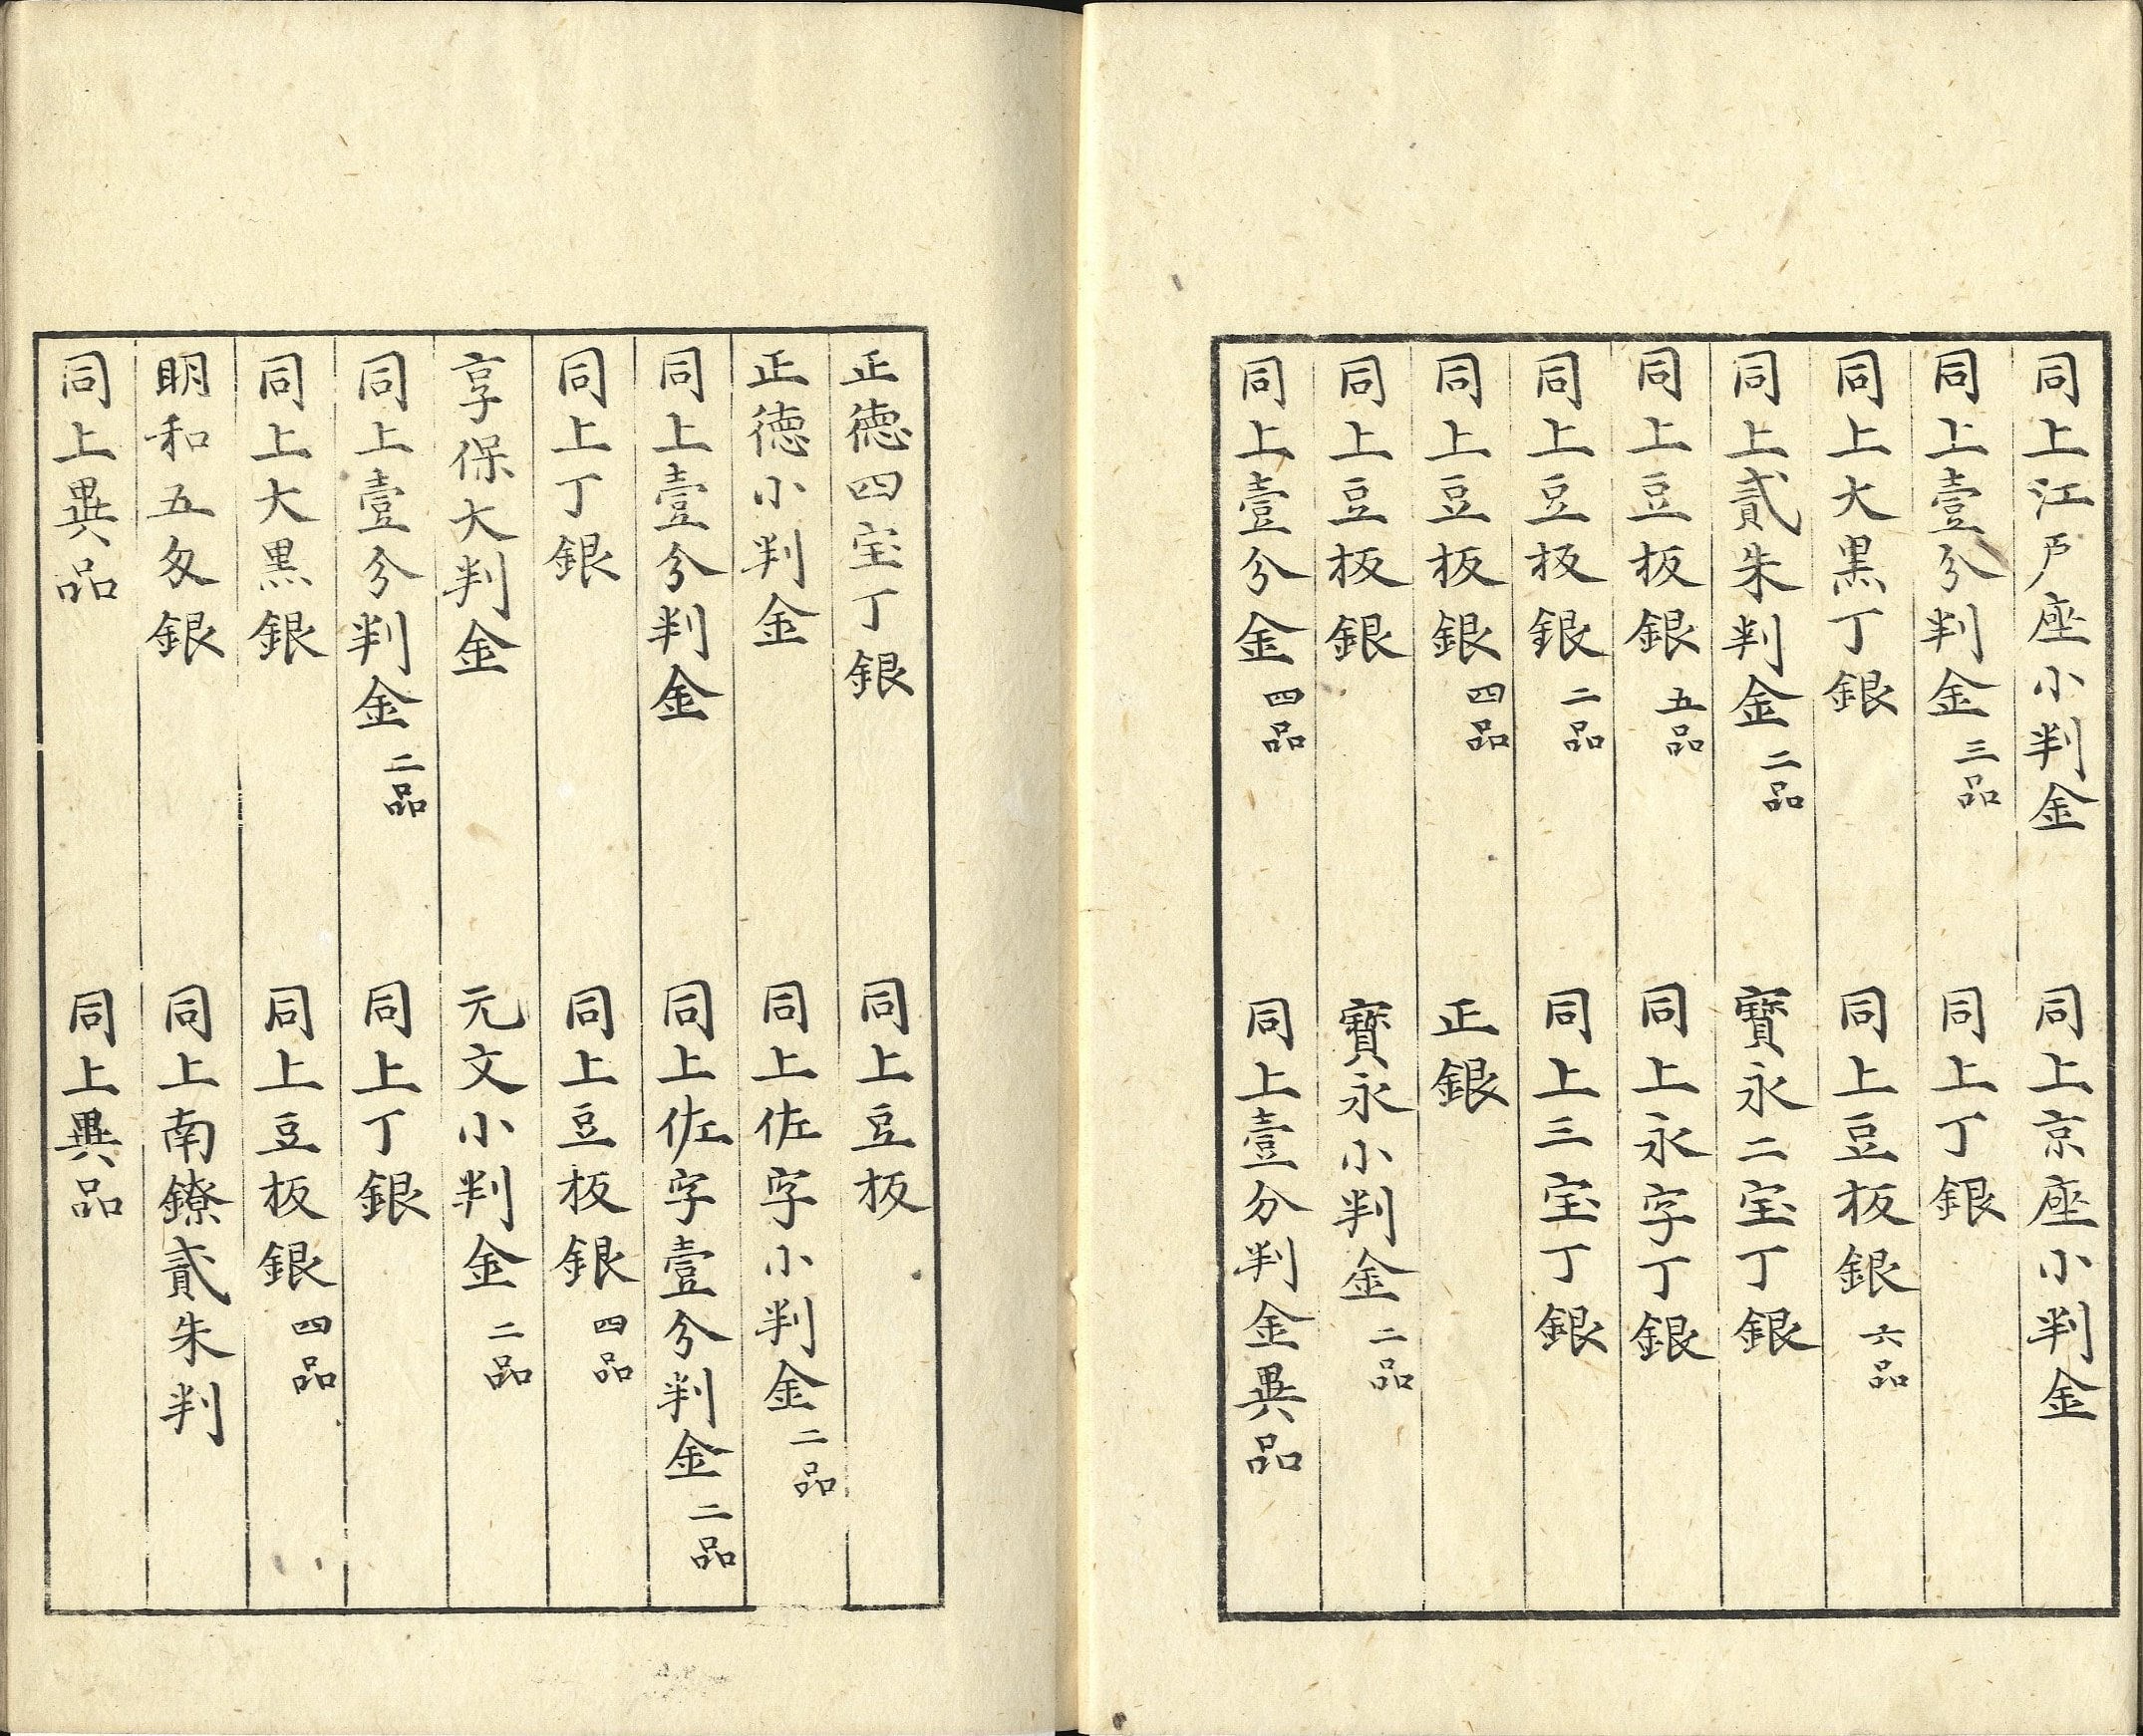 同上江戸座小判金　同上京座小判金
同上壹分判金三品　同上丁銀
同上大黒丁銀　同上豆板銀六品
同上貳朱判金二品　寳永二宝丁銀
同上豆板銀五品　同上永字丁銀
同上豆板銀二品　同上三宝丁銀
同上豆板銀四品　正銀
同上豆板銀　寳永小判金二品
同上壹分金四品　同上壹分判金異品
正徳四宝丁銀　同上豆板
正徳小判金　同上佐字小判金二品
同上壹分判金　同上佐字壹分判金二品
同上丁銀　同上豆板銀四品
享保大判金　元文小判金二品
同上壹分判金二品　同上丁銀
同上大黒銀　同上豆板銀四品
明和五匁銀　同上南鐐貳朱判
同上異品　同上異品